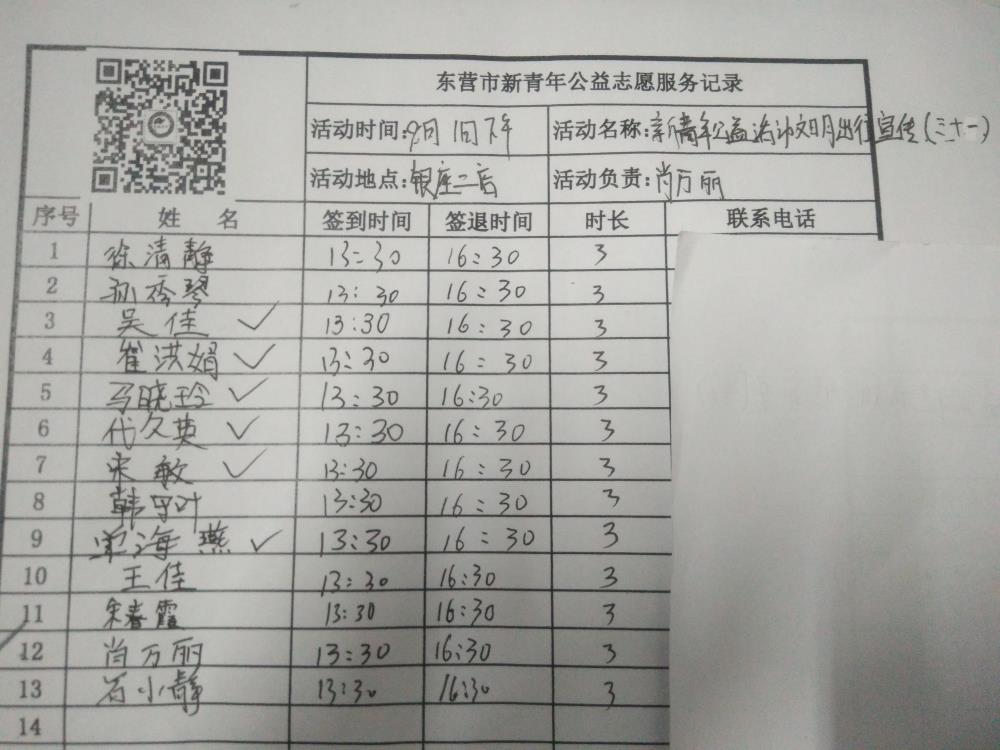 东营市新青年公益志愿服务记录
活动时间:9月1日下午 活动名称:新青年公益 文明出行宣传(三十一)
活动地点:银座二店 活动负责:肖万丽
序号 姓名 签到时间 签退时间 时长 联系电话
1 徐清静 13:30 16:30 3
2 孙秀琴 13:30 16:30 3
3 吴佳 ✓ 13:30 16:30 3
4 崔洪娟 ✓ 13:30 16:30 3
5 马晓玲 ✓ 13:30 16:30 3
6 代久英 ✓ 13:30 16:30 3
7 宋敏 ✓ 13:30 16:30 3
8 韩守叶 13:30 16:30 3
9 单海燕 ✓ 13:30 16:30 3
10 王佳 13:30 16:30 3
11 宋春霞 13:30 16:30 3
12 肖万丽 13:30 16:30 3
13 石小静 13:30 16:30 3
14